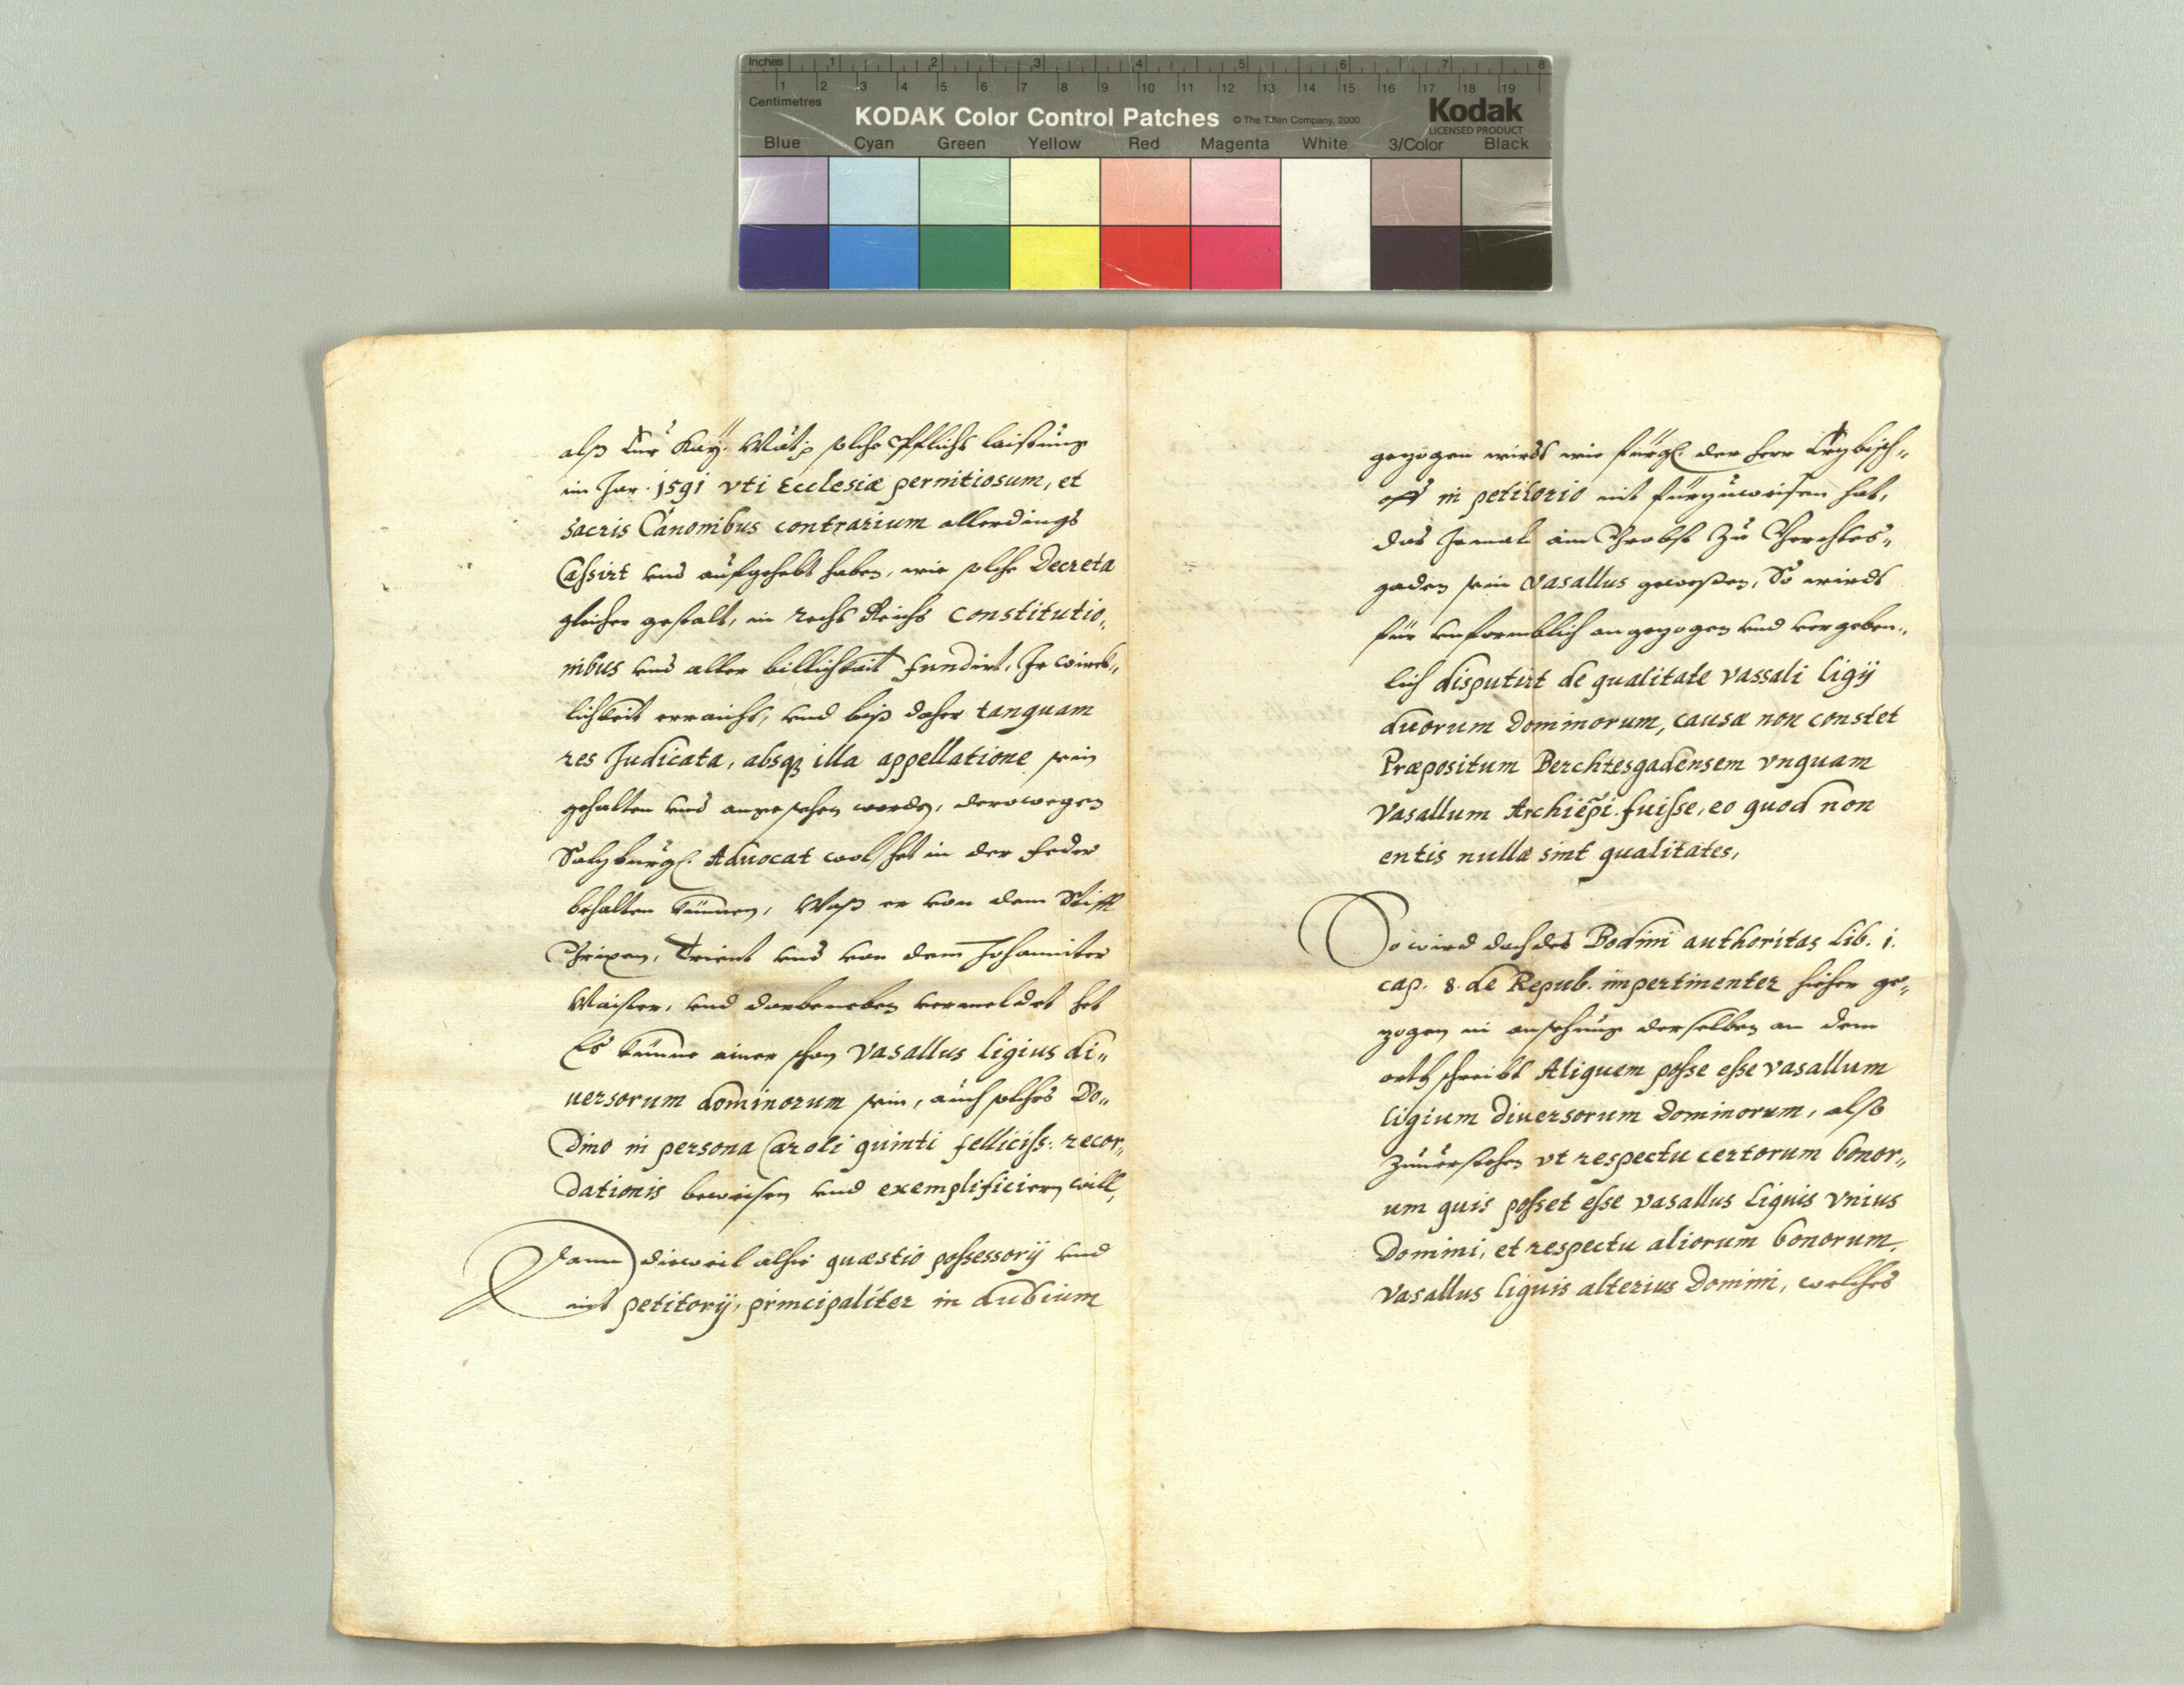 Inches 1 2 3 4 5 6 7 8
1 2 3 4 5 6 7 8 9 10 11 12 13 14 15 16 17 18 19
Centimetres
KODAK Color Control Patches © The Tiffen Company, 2000 Kodak
LICENSED PRODUCT
Blue Cyan Green Yellow Red Magenta White 3/Color Black
alß Eur Kay. Matt. solche Pflicht laistung
im Jar. 1591 vti Ecclesiæ pernitiosum, et
sacris Canonibus contrarium allerdings
Cassirt vnd aufgehebt haben, wie solche Decreta
gleicher gestalt, in recht Reichs Constitutio„
nibus vnd aller billichkait fundirt, Ir würck„
lichkeit erraicht, vnd biß daher tanquam
res Judicata, absq; illa appellatione sein
gehalten vnd angesehen worden, derowegen
Salzburg. Aduocat wol het in der Feder
behalten künnen, Waß er von dem Stifft
Brixen, Trient vnd von dem Johanniter
Maister, vnd darbeneben vermeldet het
Es künne ainer schon Vasallus ligius di„
uersorum dominorum sein, auch solches Bo„
dino in persona Caroli quinti felliciss: recor„
dationis beweisen vnd exemplificiern will,
Dann dieweil alhie quæstio possessorij vnd
nit petitorij, principaliter in dubium
gezogen wirdt wie fürgl. der Herr Erzbisch„
off in petitorio nit fürzuweisen hat,
das Jemals ain Probst zu Berchtes„
gaden sein Vasallus gewesen, So wirdt
für vnformblich angezogen vnd vergeben„
lich disputirt de qualitate vassali ligij
duorum Dominorum, causa non constet
Præpositum Berchtesgadensem vnquam
Vasallum Archiep̃i. fuisse, eo quod non
entis nullæ sint qualitates,
So wird doch des Bodini authoritas Lib. 1.
cap. 8. de Repub. impertinenter hieher ge„
zogen in ansehung derselben an dem
orth schreibt Aliquem posse esse vasallum
ligium diuersorum Dominorum, also
zuuerstehen vt respectu certorum bonor„
um quis posset esse vasallus liguis vnius
Domini, et respectu aliorum bonorum,
Vasallus liguis alterius Domini, welches